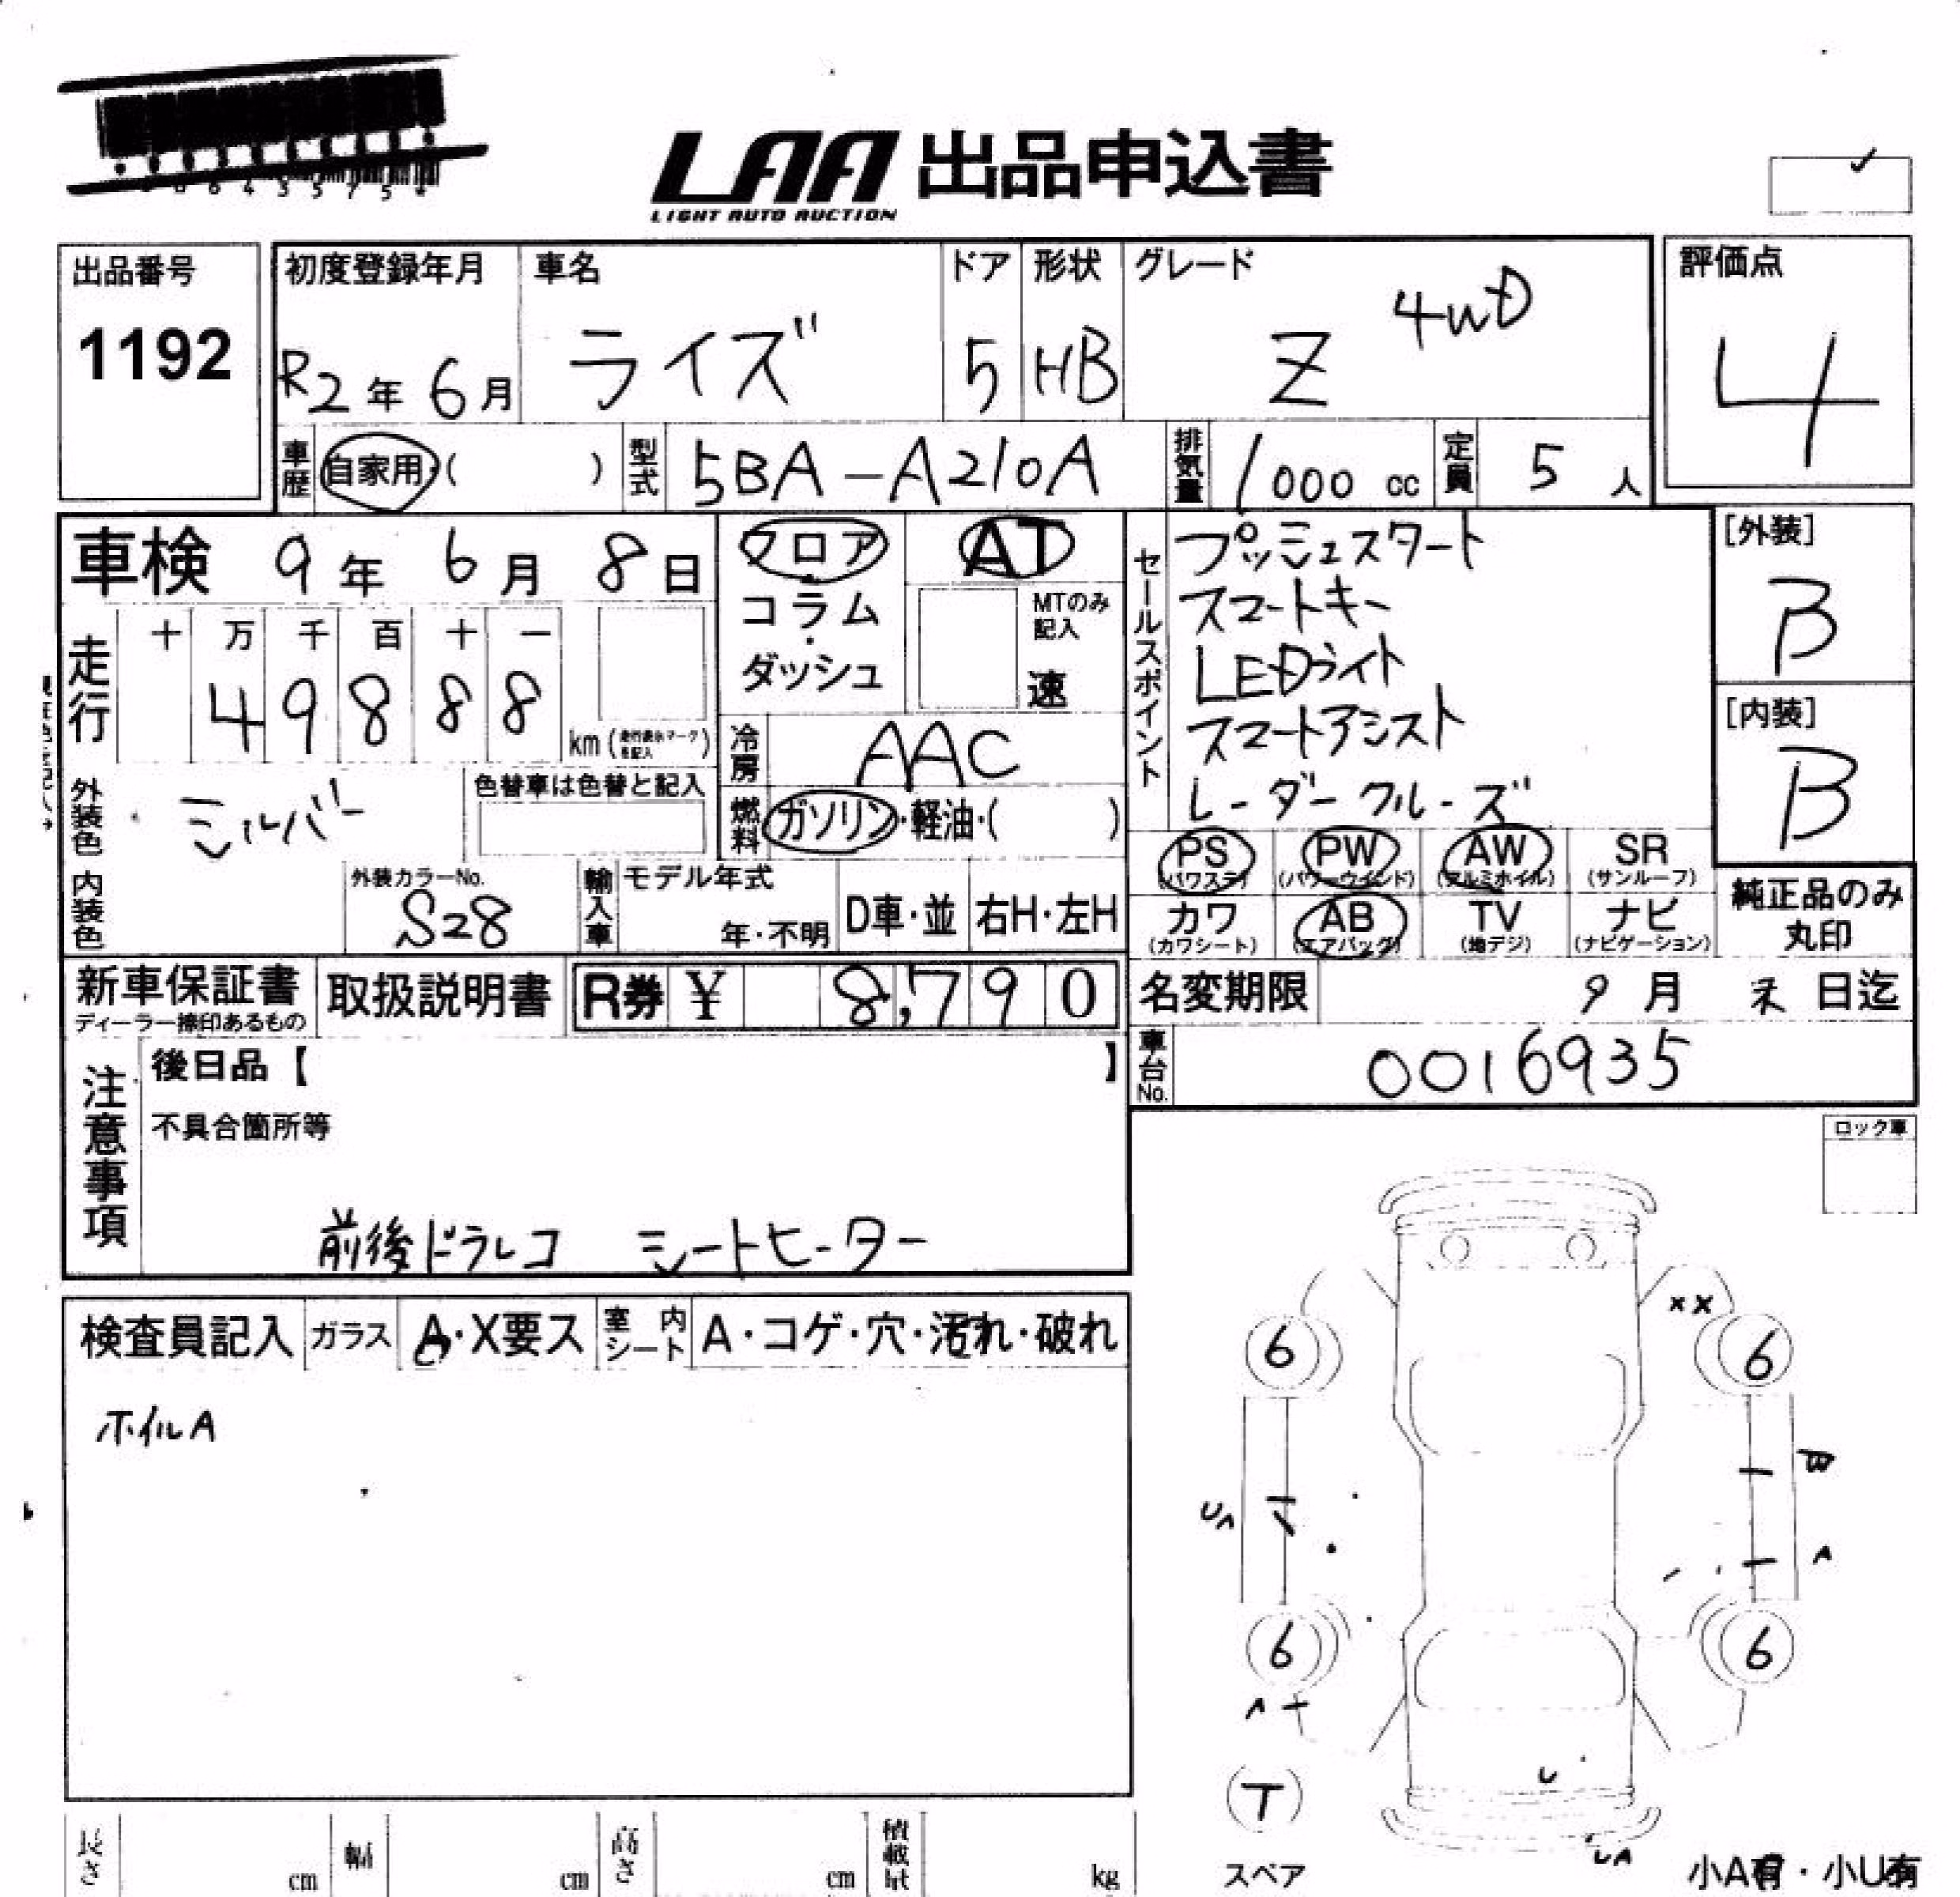 LAA 出品申込書
LIGHT AUTO AUCTION
出品番号
1192
初度登録年月
R2年 6月
車名
ライズ
ドア
5
形状
HB
グレード
Z 4WD
評価点
4
車歴 自家用・( )
型式 5BA-A210A
排気量 1000 cc
定員 5 人
車検 9年 6月 8日
フロア・コラム・ダッシュ
AT
MTのみ記入
速
走行
十 万 千 百 十 一
4 9 8 8 8
km (走行表示マークを記入)
冷房 AAC
燃料 ガソリン・軽油・( )
外装色 シルバー
色替車は色替と記入
内装色
外装カラーNo.
S28
輸入車
モデル年式
年・不明
D車・並
右H・左H
セールスポイント
プッシュスタート
スマートキー
LEDライト
スマートアシスト
レーダークルーズ
[外装]
B
[内装]
B
PS (パワステ)
PW (パワーウインド)
AW (アルミホイル)
SR (サンルーフ)
カワ (カワシート)
AB (エアバッグ)
TV (地デジ)
ナビ (ナビゲーション)
純正品のみ丸印
新車保証書
ディーラー捺印あるもの
取扱説明書
R券 ¥ 8,790
名変期限 9月 末日迄
車台No. 0016935
注意事項
後日品【 】
不具合箇所等
前後ドラレコ シートヒーター
ロック車
検査員記入
ガラス A・X要ス
室内シート A・コゲ・穴・汚れ・破れ
ホイルA
XX
6 6
W
UA
A
6 6
A
U
T
UA
スペア
小A有・小U有
長さ cm
幅 cm
高さ cm
積載量 kg